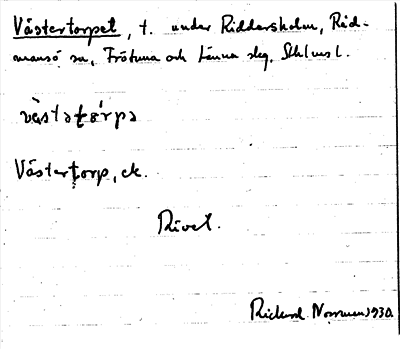 Västertorpet, t. under Riddersholm, Råd-
mansö sn, Frötuna och Länna slg, Sthlms l.
västatǫ́rpa
Västertorp, ek.
Rivet.
Rickard Norrman 1930